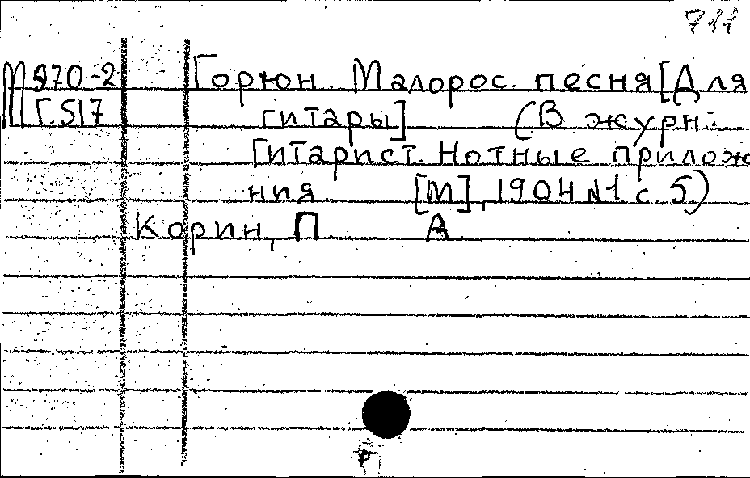 711
М970-2 Горюн. Малорос. песня [Для
Г.517 гитары] (В журн:
Гитарист. Нотные прилож
ния [М], 1904 №1 с. 5)
Корин, П А
Р